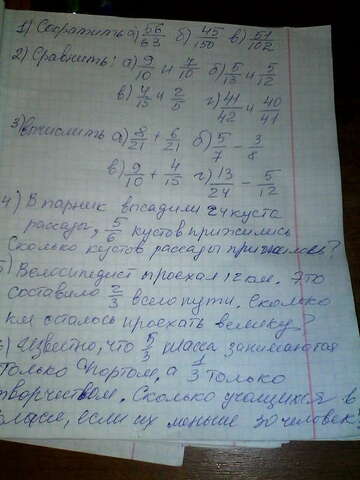 1) Сократить а) 56/63 б) 45/150 в) 51/102
2) Сравнить: а) 9/10 и 7/10 б) 5/13 и 5/12
в) 4/15 и 2/5 г) 41/42 и 40/41
3) Вычислить а) 8/21 + 6/21 б) 5/7 - 3/8
в) 9/10 + 4/15 г) 13/24 - 5/12
4) В парник высадили 24 куста
рассады, 5/6 кустов прижились
Сколько кустов рассады прижилось?
5) Велосипедист проехал 12 км. Это
составило 2/3 всего пути. Сколько
км осталось проехать велику?
6) Известно, что 5/3 класса занимаются
только спортом, а 1/3 только
творчеством. Сколько учащихся в
классе, если их меньше 30 человек?